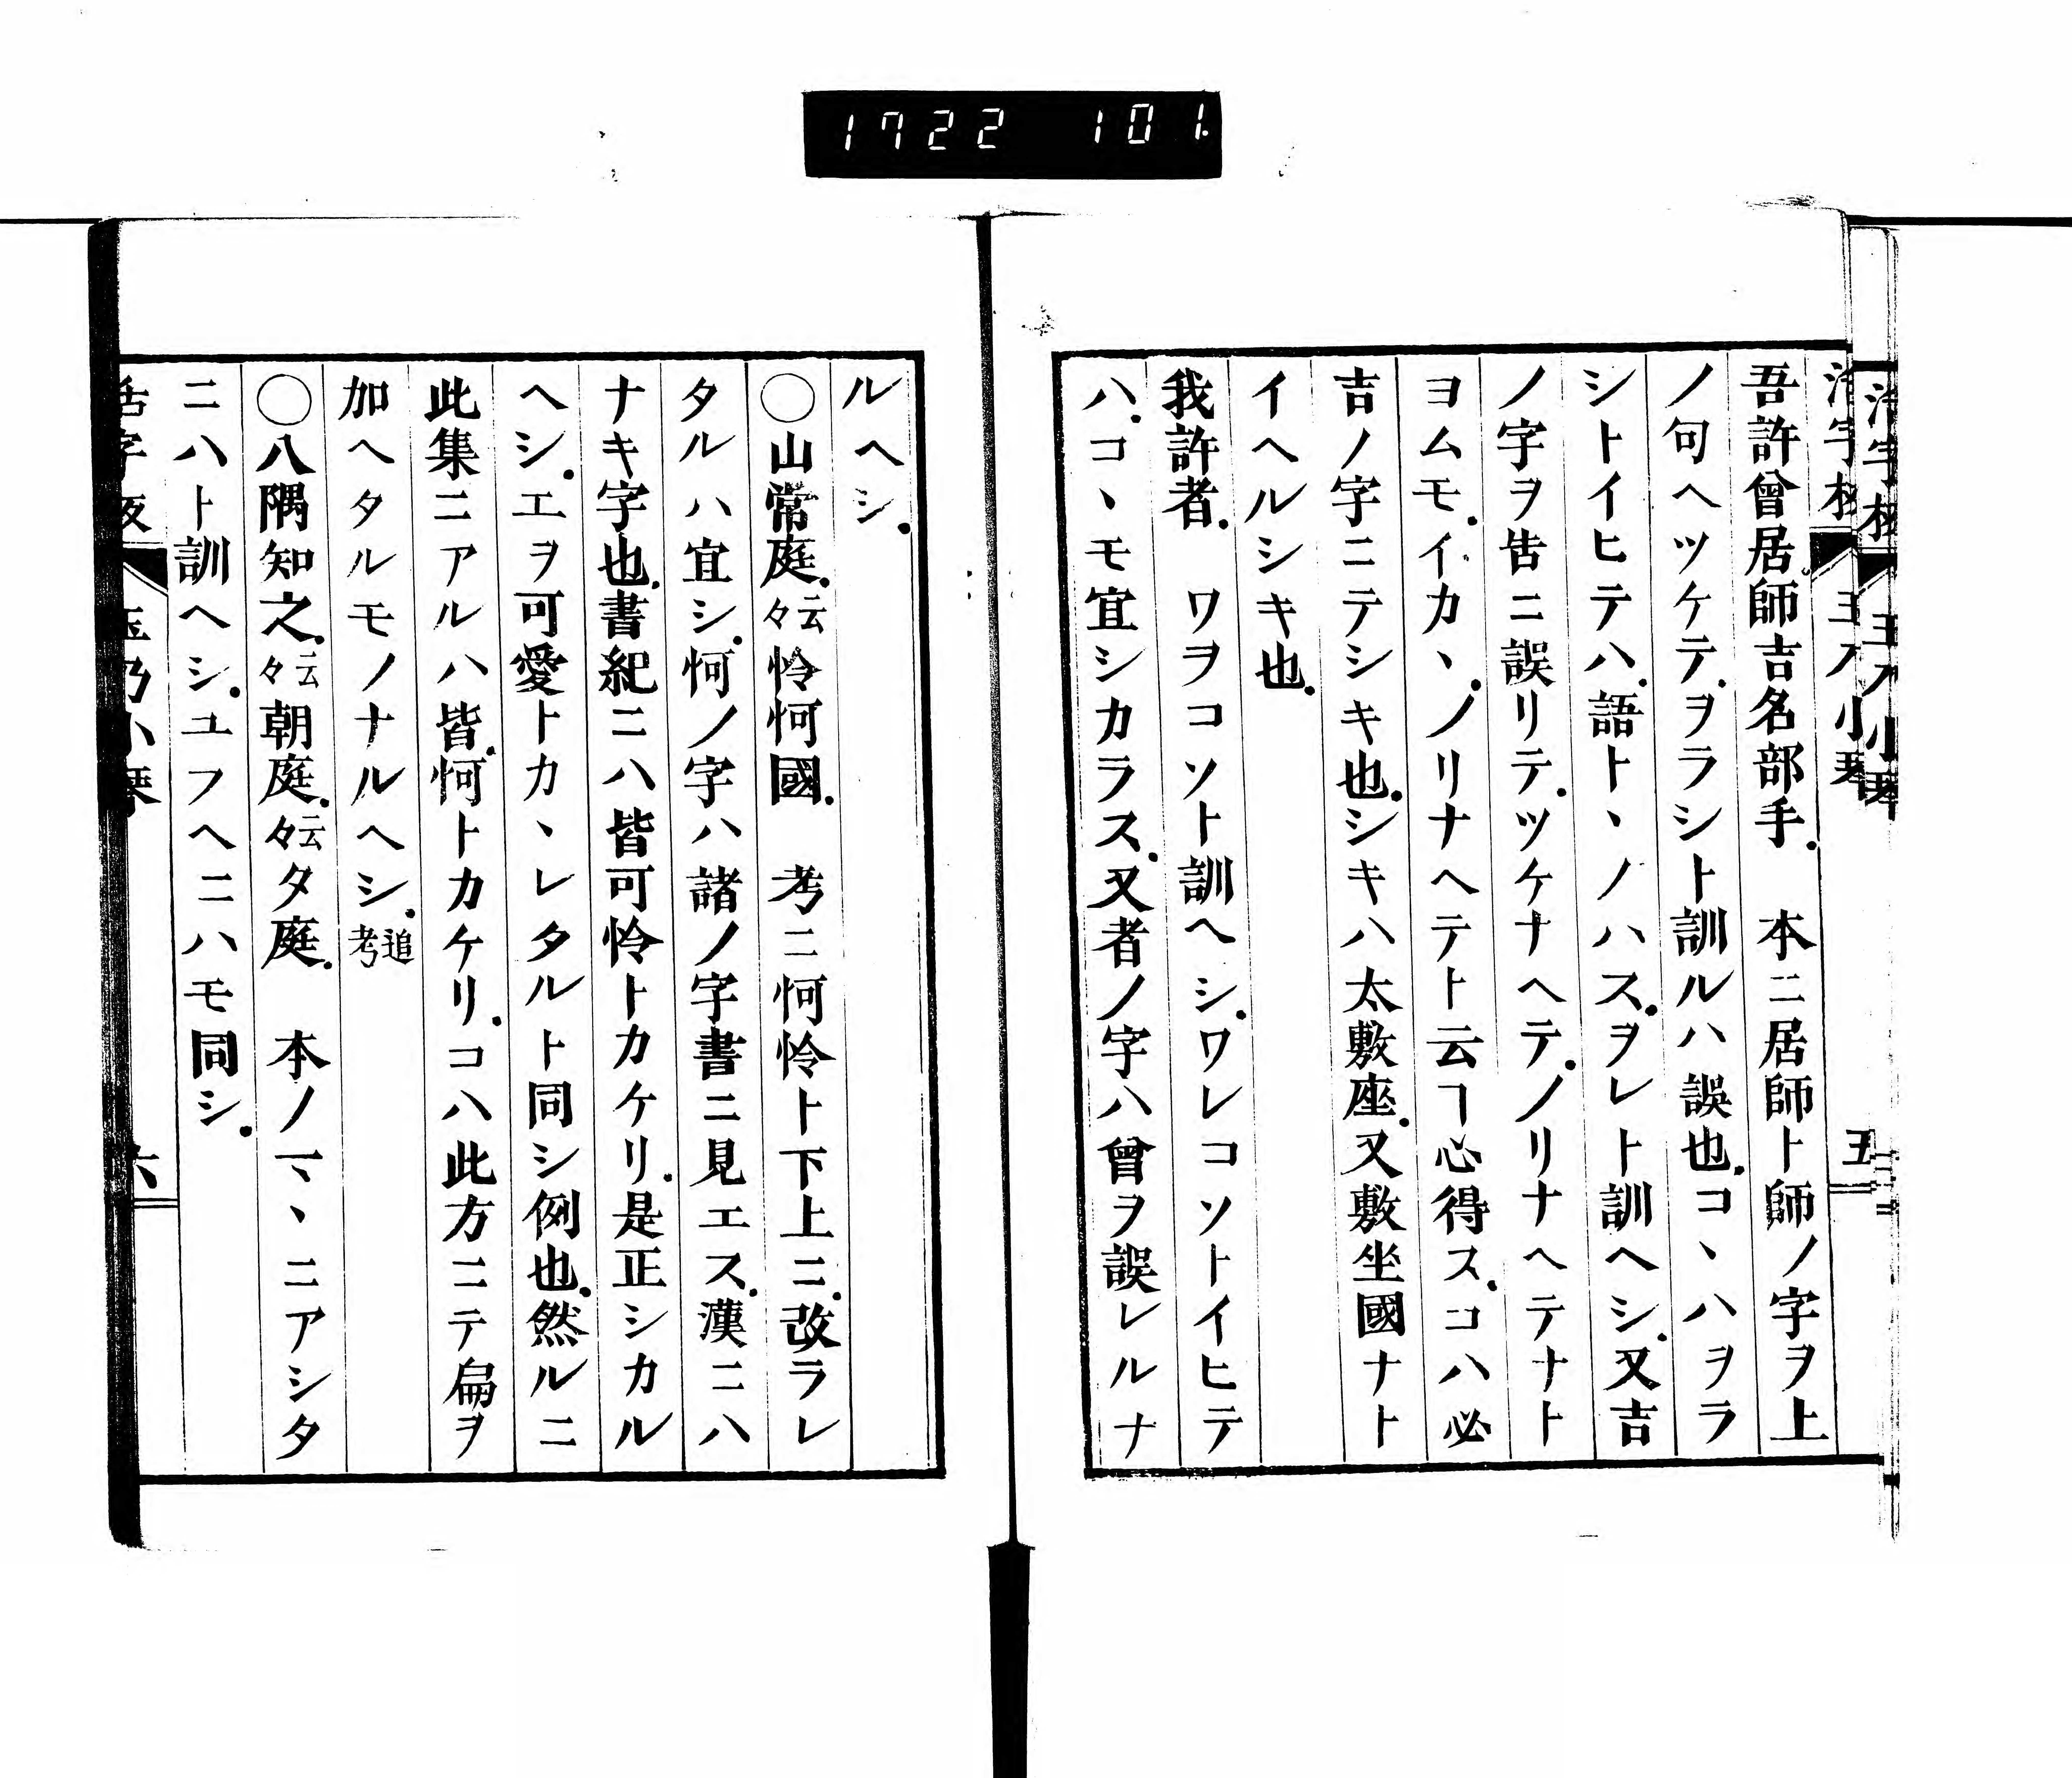 1722 101
吾許曾居。師吉名部手。 本ニ居師ト師ノ字ヲ上
ノ句ヘツケテ。ヲラシト訓ルハ誤也。コヽハヲラ
シトイヒテハ。語トヽノハス。ヲレト訓ヘシ。又吉
ノ字ヲ告ニ誤リテ。ツケナヘテ。ノリナヘテナト
ヨムモ。イカヽ。ノリナヘテト云ヿ心得ス。コハ必
吉ノ字ニテシキ也。シキハ太敷座。又敷坐國ナト
イヘルシキ也。
我許者。 ワヲコソト訓ヘシ。ワレコソトイヒテ
ハ。コヽモ宜シカラス。又者ノ字ハ曾ヲ誤レルナ
五
ルヘシ。
○山常庭。云々怜怐國。 考ニ怐怜ト下上ニ。改ラレ
タルハ宜シ。怐ノ字ハ諸ノ字書ニ見エス。漢ニハ
ナキ字也。書紀ニハ皆可怜トカケリ。是正シカル
ヘシ。エヲ可愛トカヽレタルト同シ例也。然ルニ
此集ニアルハ皆。怐トカケリ。コハ此方ニテ扁ヲ
加ヘタルモノナルヘシ。追考
○八隅知之。云々朝庭。云々夕庭。 本ノマヽニアシタ
ニハト訓ヘシ。ユフヘニハモ同シ。
玉乃小琴
六